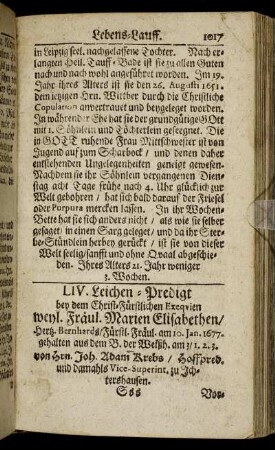 Lebens-Lauff. 1017
in Leipzig seel. nachgelassene Tochter. Nach er-
langten Heil. Tauff-Bade ist sie zu allen Guten
nach und nach wohl angeführet worden. Im 19.
Jahr ihres Alters ist sie den 26. Augusti 1651.
dem ietzigen Hrn. Wittber durch die Christliche
Copulation anvertrauet und beygeleget worden.
In währender Ehe hat sie der grundgütige GOtt
mit 1. Söhnlein und Töchterlein geseegnet. Die
in GOTT ruhende Frau Mittschwester ist von
Jugend auf zum Scharbock / und denen daher
entstehenden Ungelegenheiten geneiget gewesen.
Nachdem sie ihr Söhnlein vergangenen Diens-
tag acht Tage frühe nach 4. Uhr glücklich zur
Welt gebohren / hat sich bald darauf der Friesel
oder Purpura mercken lassen. In ihr Wochen-
Bette hat sie sich anders nicht / als wie sie selber
gesaget / in einen Sarg geleget / und da ihr Ster-
be-Stündlein herbey gerückt / ist sie von dieser
Welt seelig / sanfft und ohne Qvaal abgeschie-
den. Ihres Alters 21. Jahr weniger
3. Wochen.
LIV. Leichen-Predigt
bey dem Christ-Fürstlichen Exeqvien
weyl. Fräul. Marien Elisabethen /
Hertz. Bernhards / Fürstl. Fräul. am 10. Jan. 1677.
gehalten aus dem B. der Weißh. am 3 / 1. 2. 3.
von Hrn. Joh. Adam Krebs / Hoffpred.
und damahls Vice-Superint. zu Ich-
tershausen.
Sss Vor-